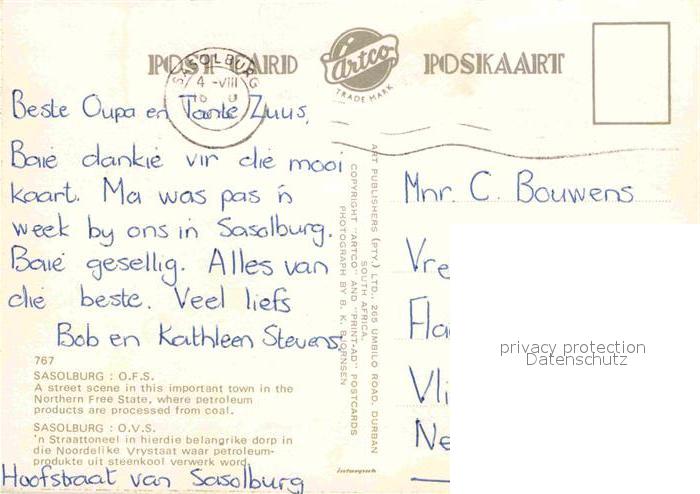 POST CARD
Artco
TRADE MARK
POSKAART
SASOLBURG
4 -VIII
Beste Oupa en Tante Zuus,
Baie dankie vir die mooi
kaart. Ma was pas 'n
week by ons in Sasolburg.
Baie gesellig. Alles van
die beste. Veel liefs
Bob en Kathleen Stevens.
767
SASOLBURG : O.F.S.
A street scene in this important town in the
Northern Free State, where petroleum
products are processed from coal.
SASOLBURG : O.V.S.
'n Straattoneel in hierdie belangrike dorp in
die Noordelike Vrystaat waar petroleum-
produkte uit steenkool verwerk word.
Hoofstraat van Sasolburg
ART PUBLISHERS (PTY.) LTD., 265 UMBILO ROAD, DURBAN
SOUTH AFRICA.
COPYRIGHT "ARTCO" AND "PRINT-AD" POSTCARDS
PHOTOGRAPH BY B. K. BJORNSEN
interpak
Mnr. C. Bouwens
Vre
Fla
Vli
Ne
privacy protection
Datenschutz